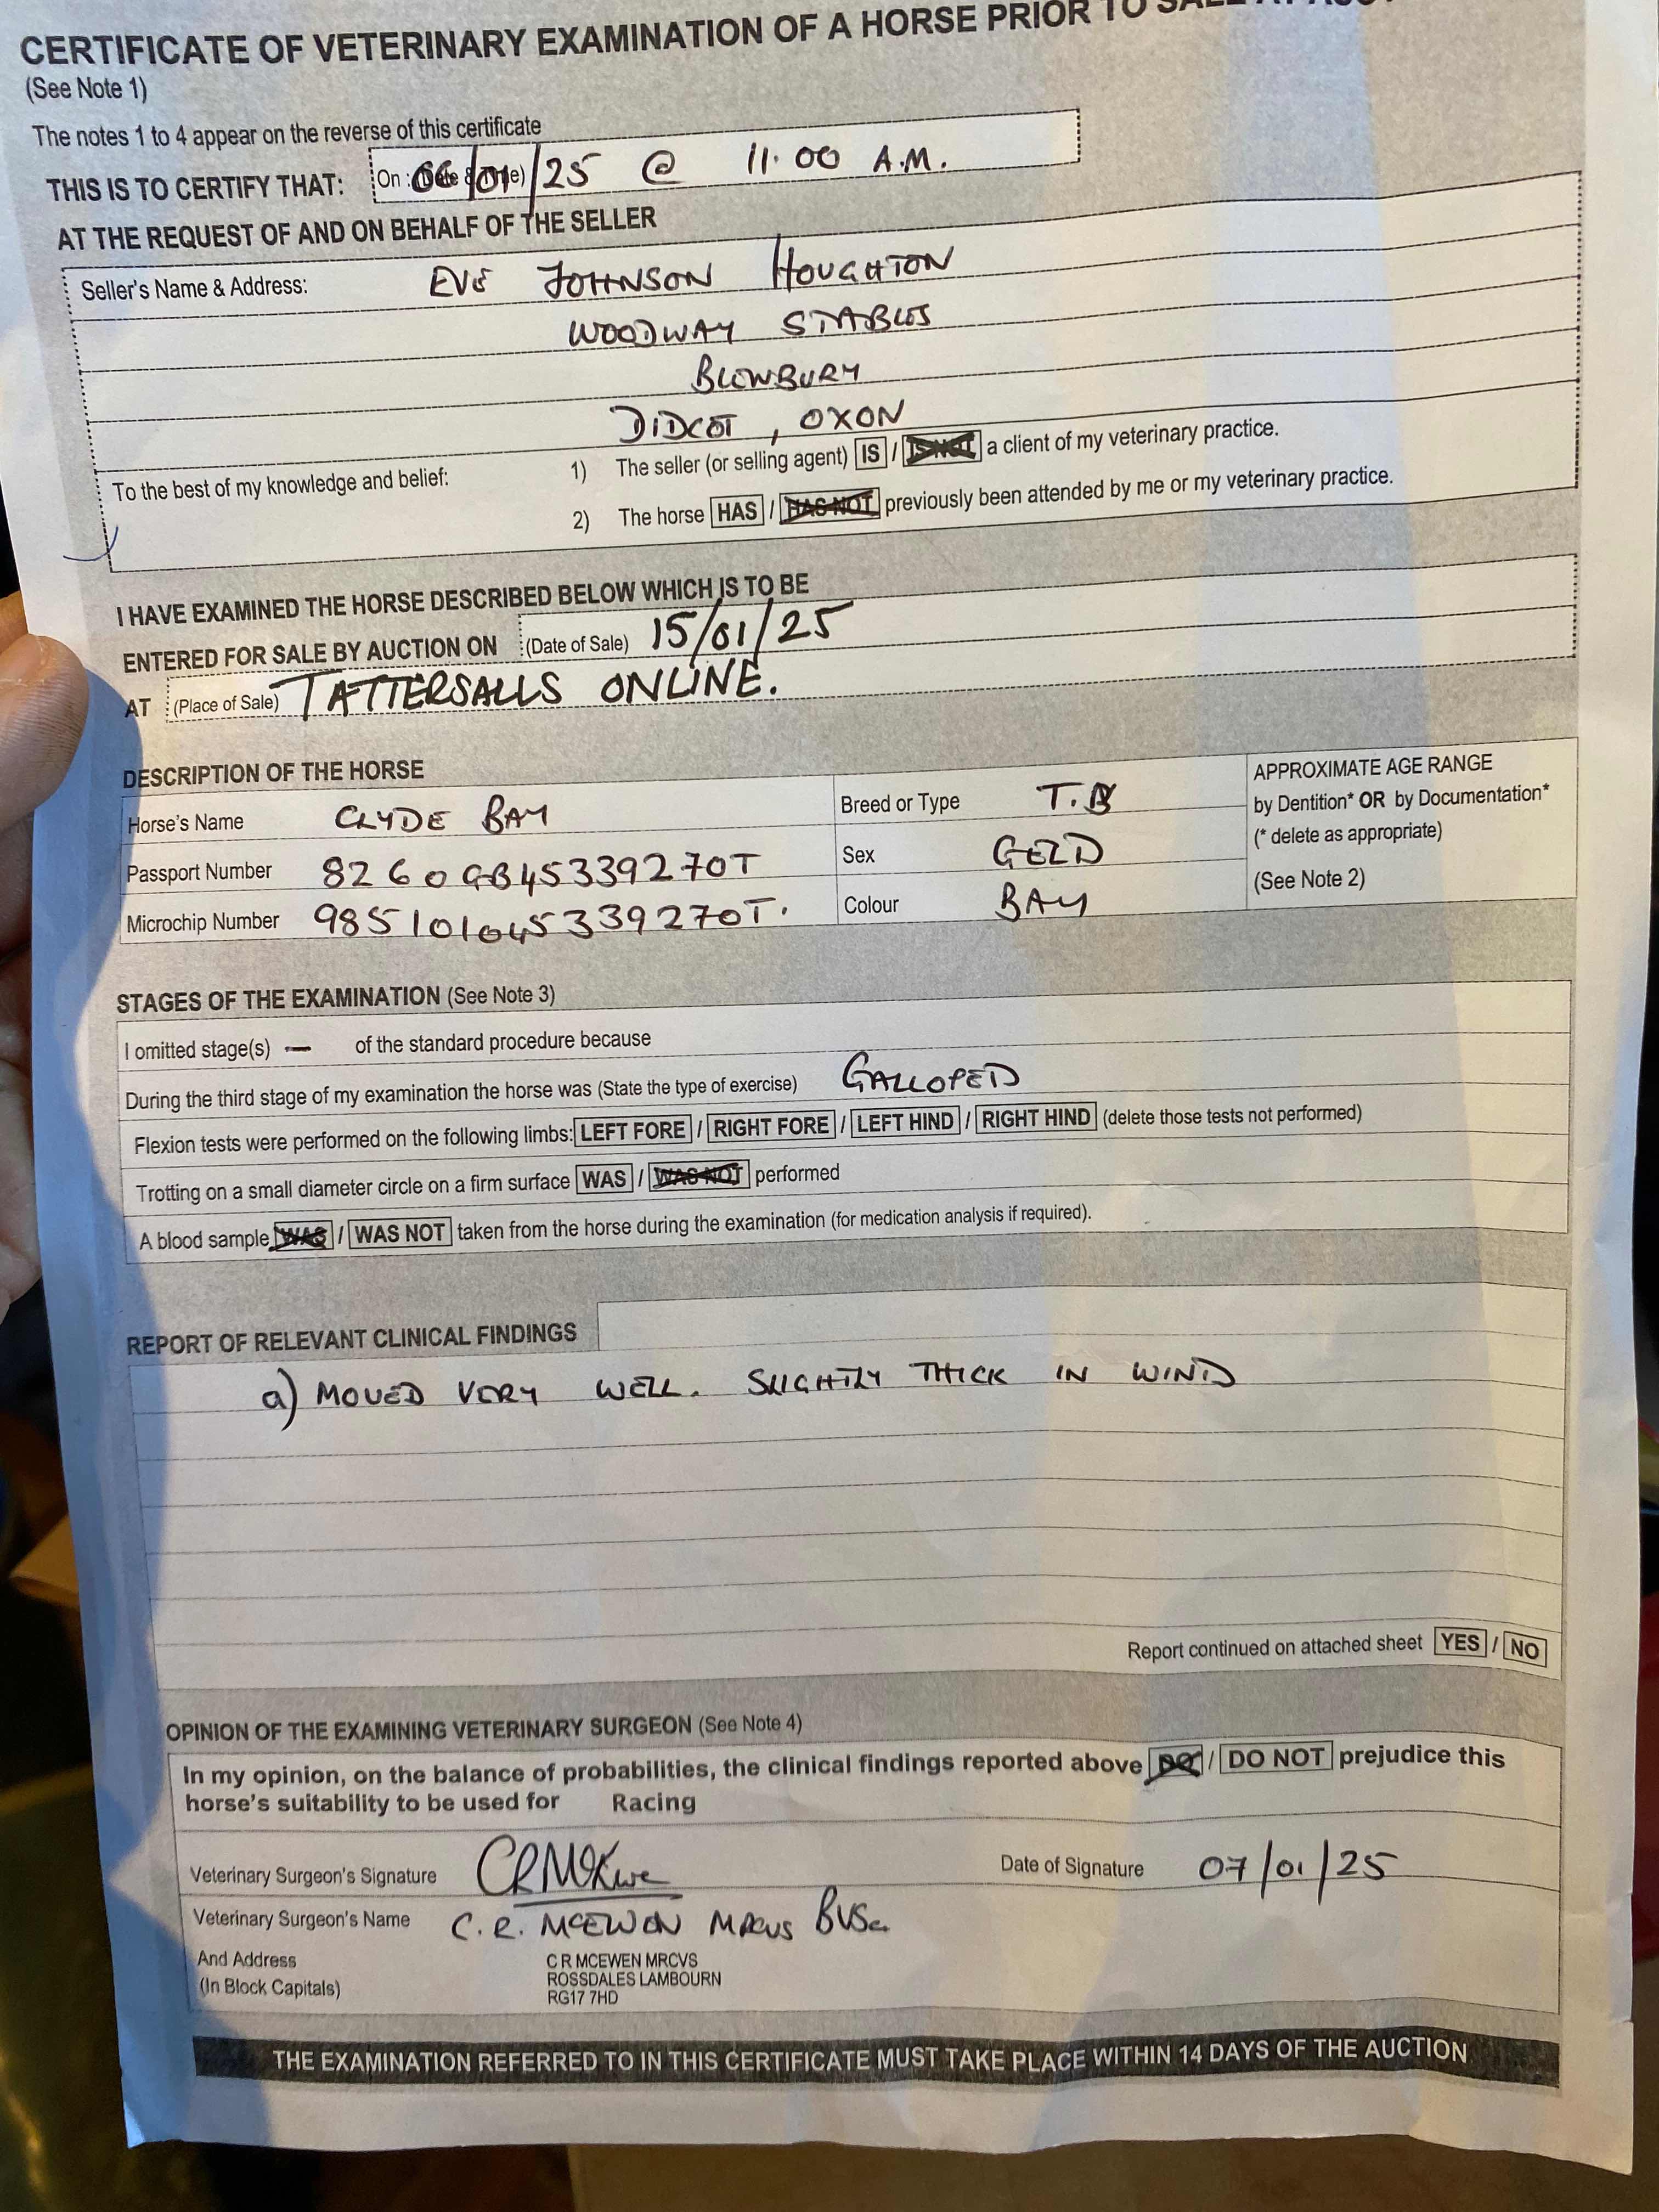 CERTIFICATE OF VETERINARY EXAMINATION OF A HORSE PRIOR TO SALE AT
(See Note 1)
The notes 1 to 4 appear on the reverse of this certificate
THIS IS TO CERTIFY THAT: On : (Date & Time) 06/01/25 @ 11.00 A.M.
AT THE REQUEST OF AND ON BEHALF OF THE SELLER
Seller's Name & Address: EVE JOHNSON HOUGHTON
WOODWAY STABLES
BLEWBURY
DIDCOT, OXON
To the best of my knowledge and belief: 1) The seller (or selling agent) IS / IS NOT a client of my veterinary practice.
2) The horse HAS / HAS NOT previously been attended by me or my veterinary practice.
I HAVE EXAMINED THE HORSE DESCRIBED BELOW WHICH IS TO BE
ENTERED FOR SALE BY AUCTION ON (Date of Sale) 15/01/25
AT (Place of Sale) TATTERSALLS ONLINE.
DESCRIPTION OF THE HORSE
Horse's Name CLYDE BAY
Passport Number 8260GB45339270T
Microchip Number 985101045339270T.
Breed or Type T.B
Sex GELD
Colour BAY
APPROXIMATE AGE RANGE
by Dentition* OR by Documentation*
(* delete as appropriate)
(See Note 2)
STAGES OF THE EXAMINATION (See Note 3)
I omitted stage(s) — of the standard procedure because
During the third stage of my examination the horse was (State the type of exercise) GALLOPED
Flexion tests were performed on the following limbs: LEFT FORE / RIGHT FORE / LEFT HIND / RIGHT HIND (delete those tests not performed)
Trotting on a small diameter circle on a firm surface WAS / WAS NOT performed
A blood sample WAS / WAS NOT taken from the horse during the examination (for medication analysis if required).
REPORT OF RELEVANT CLINICAL FINDINGS
a) MOVED VERY WELL. SLIGHTLY THICK IN WIND
Report continued on attached sheet YES / NO
OPINION OF THE EXAMINING VETERINARY SURGEON (See Note 4)
In my opinion, on the balance of probabilities, the clinical findings reported above DO / DO NOT prejudice this
horse's suitability to be used for Racing
Veterinary Surgeon's Signature CRMcEwe
Date of Signature 07/01/25
Veterinary Surgeon's Name C.R. MCEWEN MRCVS BVSc
And Address
(In Block Capitals)
C R MCEWEN MRCVS
ROSSDALES LAMBOURN
RG17 7HD
THE EXAMINATION REFERRED TO IN THIS CERTIFICATE MUST TAKE PLACE WITHIN 14 DAYS OF THE AUCTION